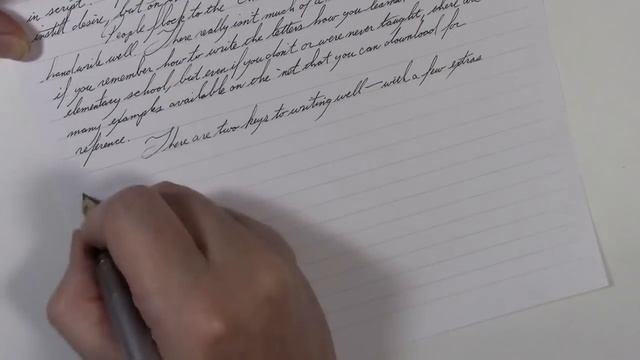 in script.
instill desire, but on
People flock to the
handwrite well. There really isn't much of a
if you remember how to write the letters how you learned
elementary school, but even if you don't or were never taught, there are
many examples available on the net that you can download for
reference.
There are two keys to writing well—with a few extras